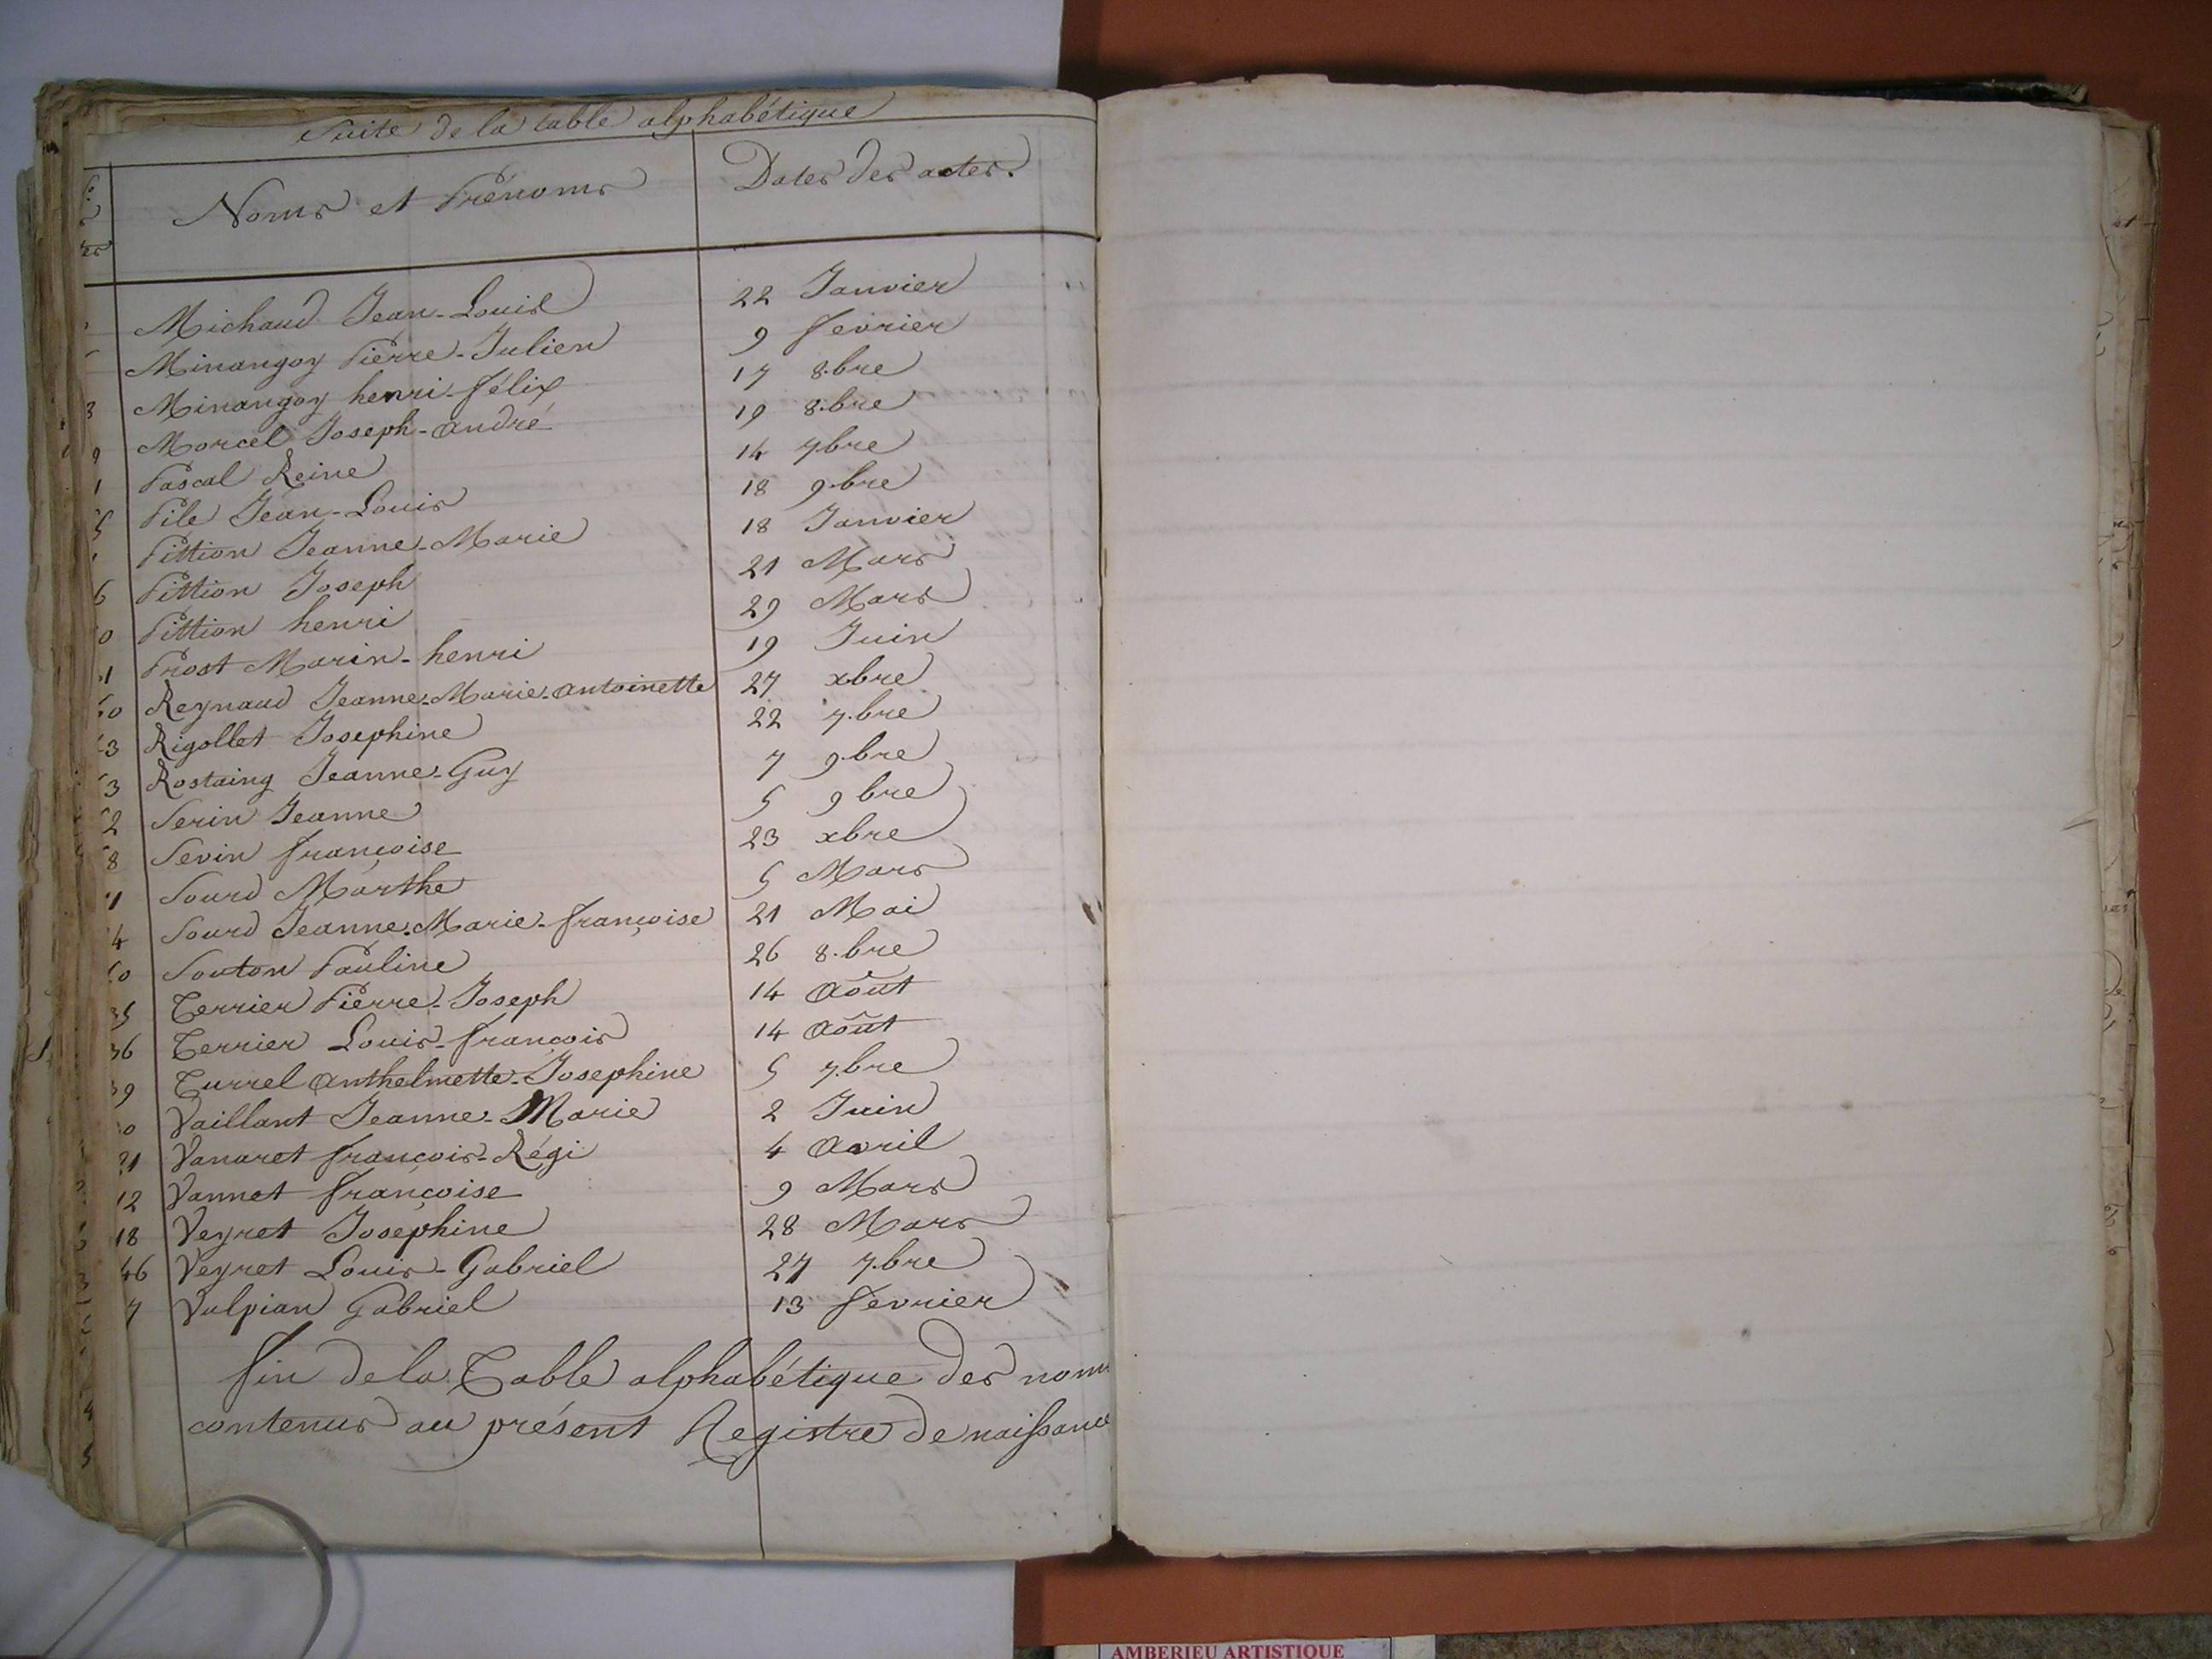 Suite de la table alphabétique
Noms et Prénoms Dates des actes.
Michaud Jean-Louis 22 Janvier
Minangoy Pierre-Julien 9 fevrier
3 Minangoy henri-félix 17 8.bre
9 Morcel Joseph-andré 19 8.bre
1 Pascal Reine 14 7bre
5 Pile Jean-Louis 18 9.bre
Pittion Jeanne-Marie 18 Janvier
6 Pittion Joseph 21 Mars
0 Pittion henri 29 Mars
1 Prost Marin-henri 19 Juin
60 Reynaud Jeanne-Marie-antoinette 27 xbre
3 Rigollet Josephine 22 7.bre
3 Rostaing Jeanne-Guy 7 9.bre
2 Serin Jeanne 5 9bre
8 Sevin françoise 23 xbre
11 Sourd Marthe 5 Mars
4 Sourd Jeanne-Marie-françoise 21 Mai
0 Souton Pauline 26 8.bre
35 Terrier Pierre-Joseph 14 août
36 Terrier Louis-françois 14 août
39 Turrel anthelmette-Josephine 5 7.bre
0 Vaillant Jeanne-Marie 2 Juin
21 Vanaret françois-Régi 4 avril
12 Vannet françoise 9 Mars
18 Veyret Josephine 28 Mars
46 Veyret Louis-Gabriel 27 7.bre
7 Vulpian Gabriel 13 fevrier
fin de la Table alphabétique des noms
contenus au présent Registre de naissance
AMBERIEU ARTISTIQUE